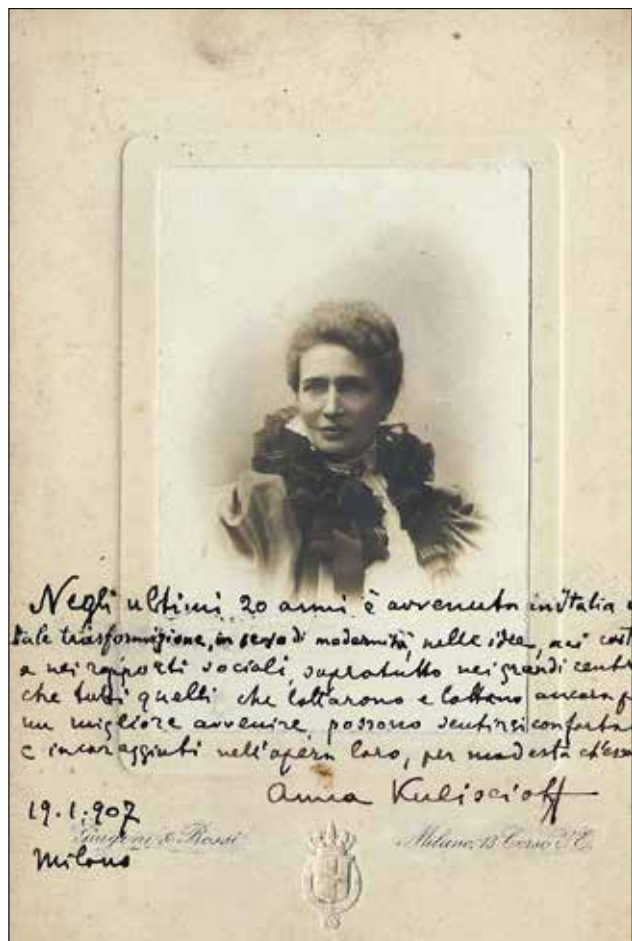 Negli ultimi 20 anni è avvenuta in Italia
tale trasformazione, in senso di modernità, nelle idee, nei
e nei rapporti sociali, sopratutto nei grandi centr
che tutti quelli che lottarono e lottano ancora p
un migliore avvenire, possono sentirsi conforta
e incoraggiati nell'opera loro, per modesta ch'ess
Anna Kuliscioff
19.1.907
Milano
Guigoni & Bossi
Milano, 13 Corso V.E.